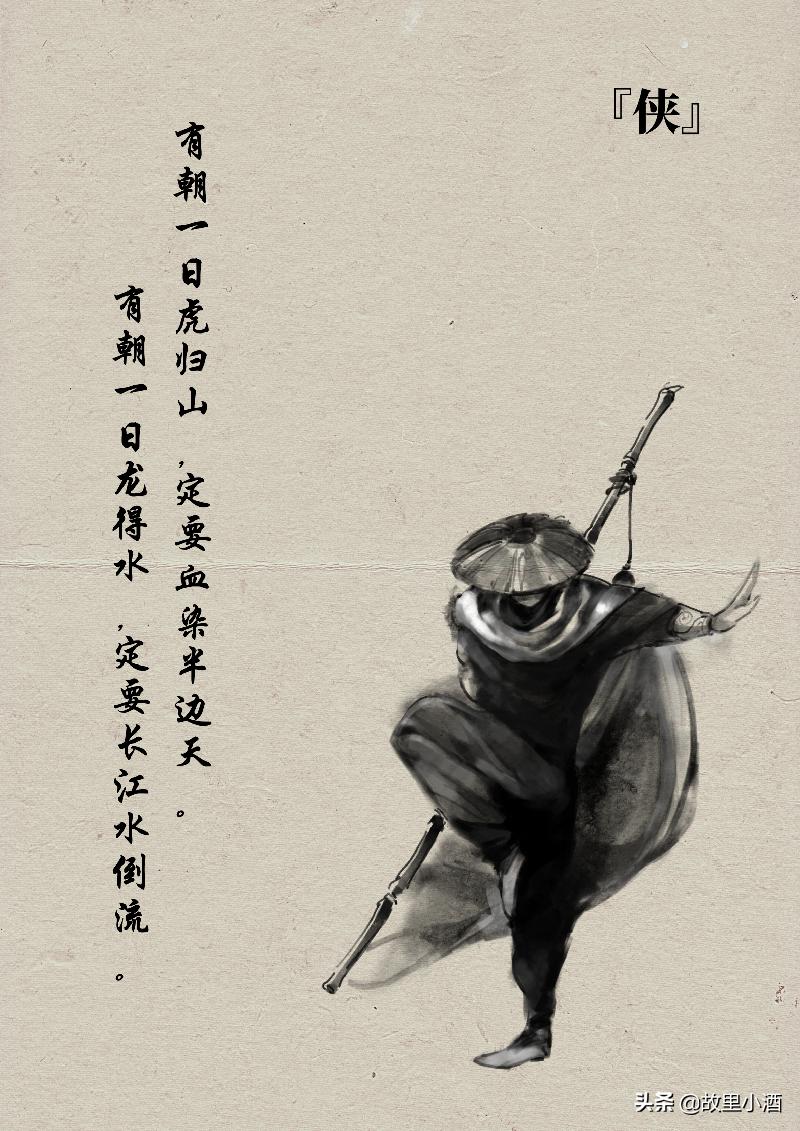 『侠』
有朝一日虎归山，定要血染半边天。
有朝一日龙得水，定要长江水倒流。
头条 @故里小酒